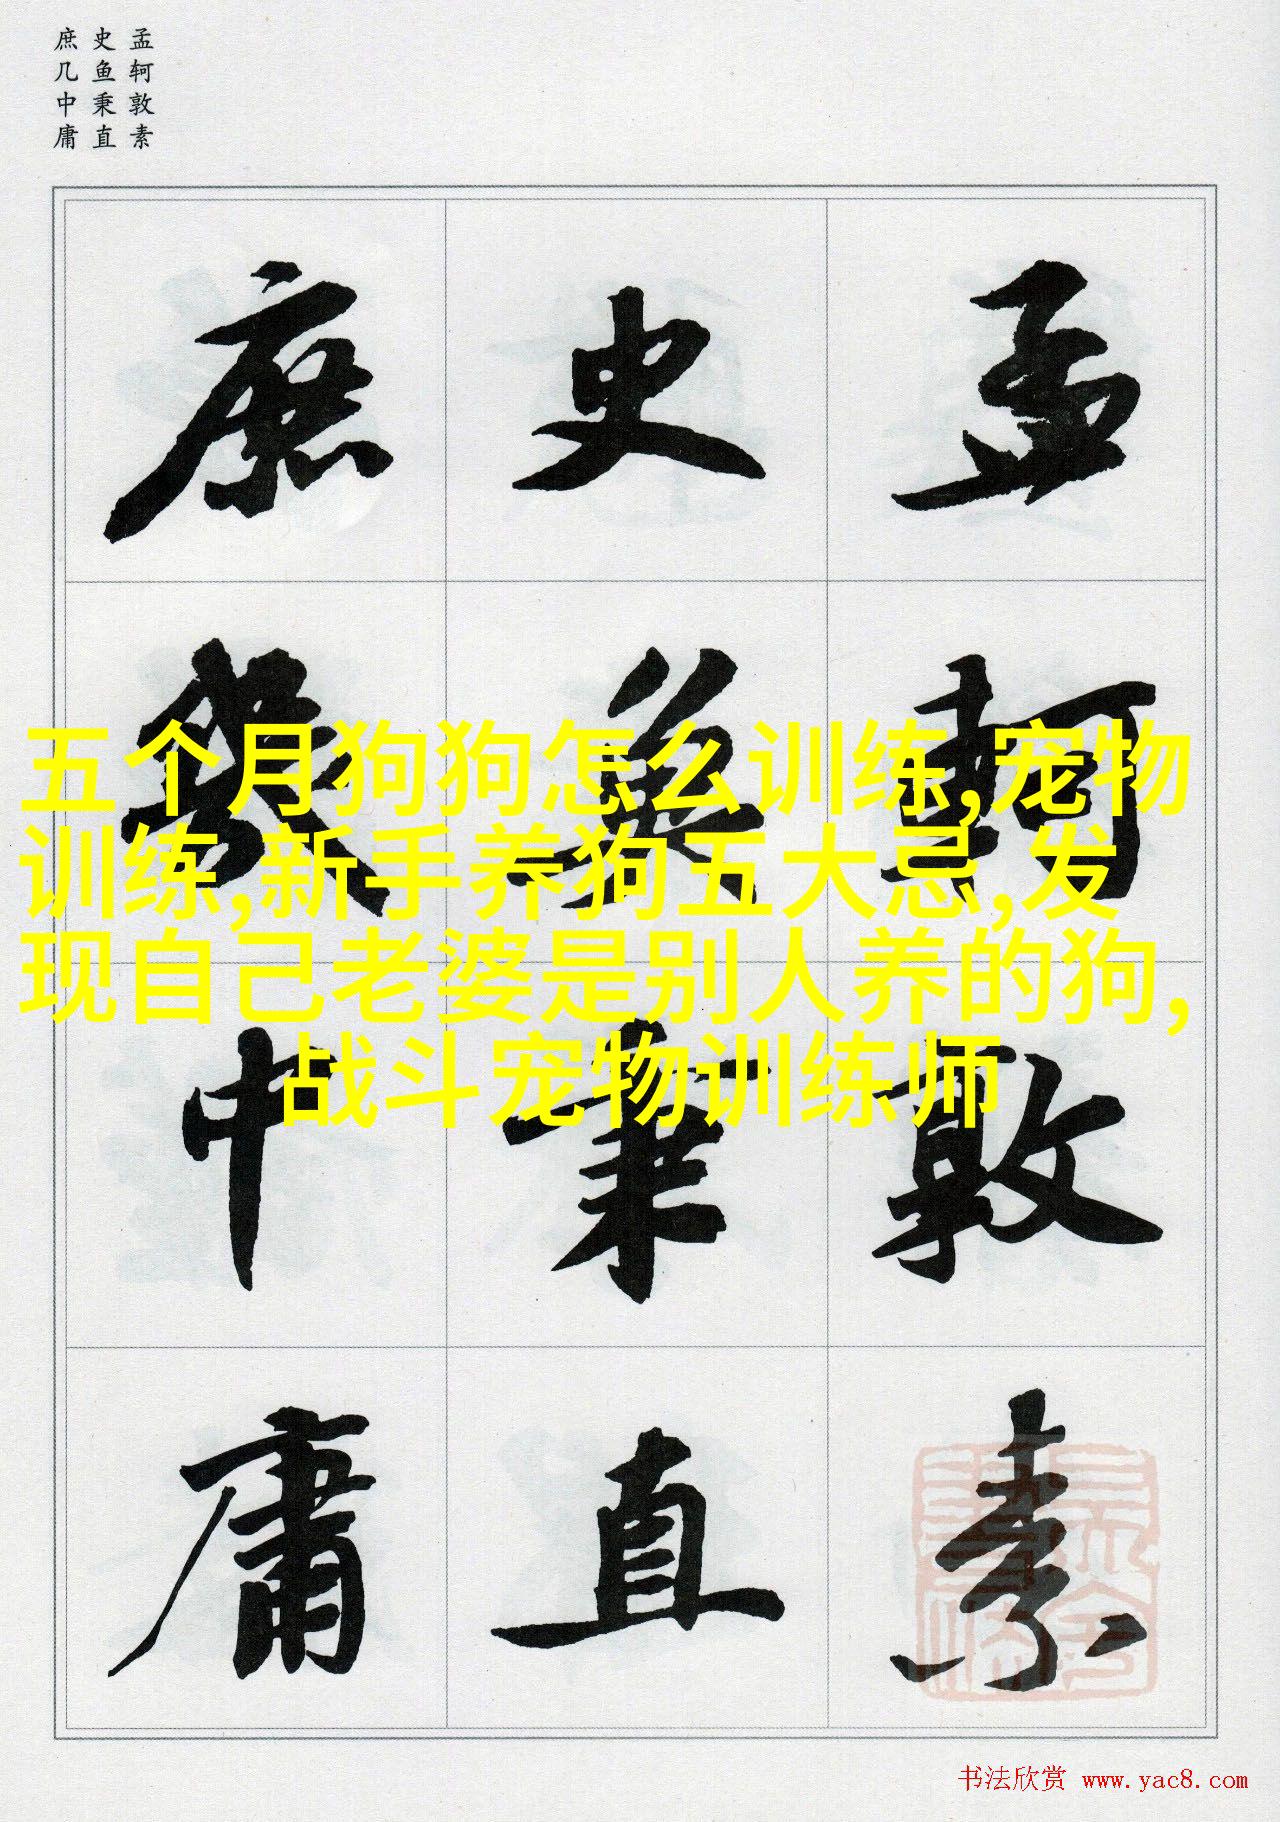 孟轲敦素
史鱼秉直
庶几中庸
孟軻敦素
史魚秉直
庶幾中庸
五个月狗狗怎么训练,宠物
训练,新手养狗五大忌,发
现自己老婆是别人养的狗,
战斗宠物训练师
书法欣赏 www.yac8.com